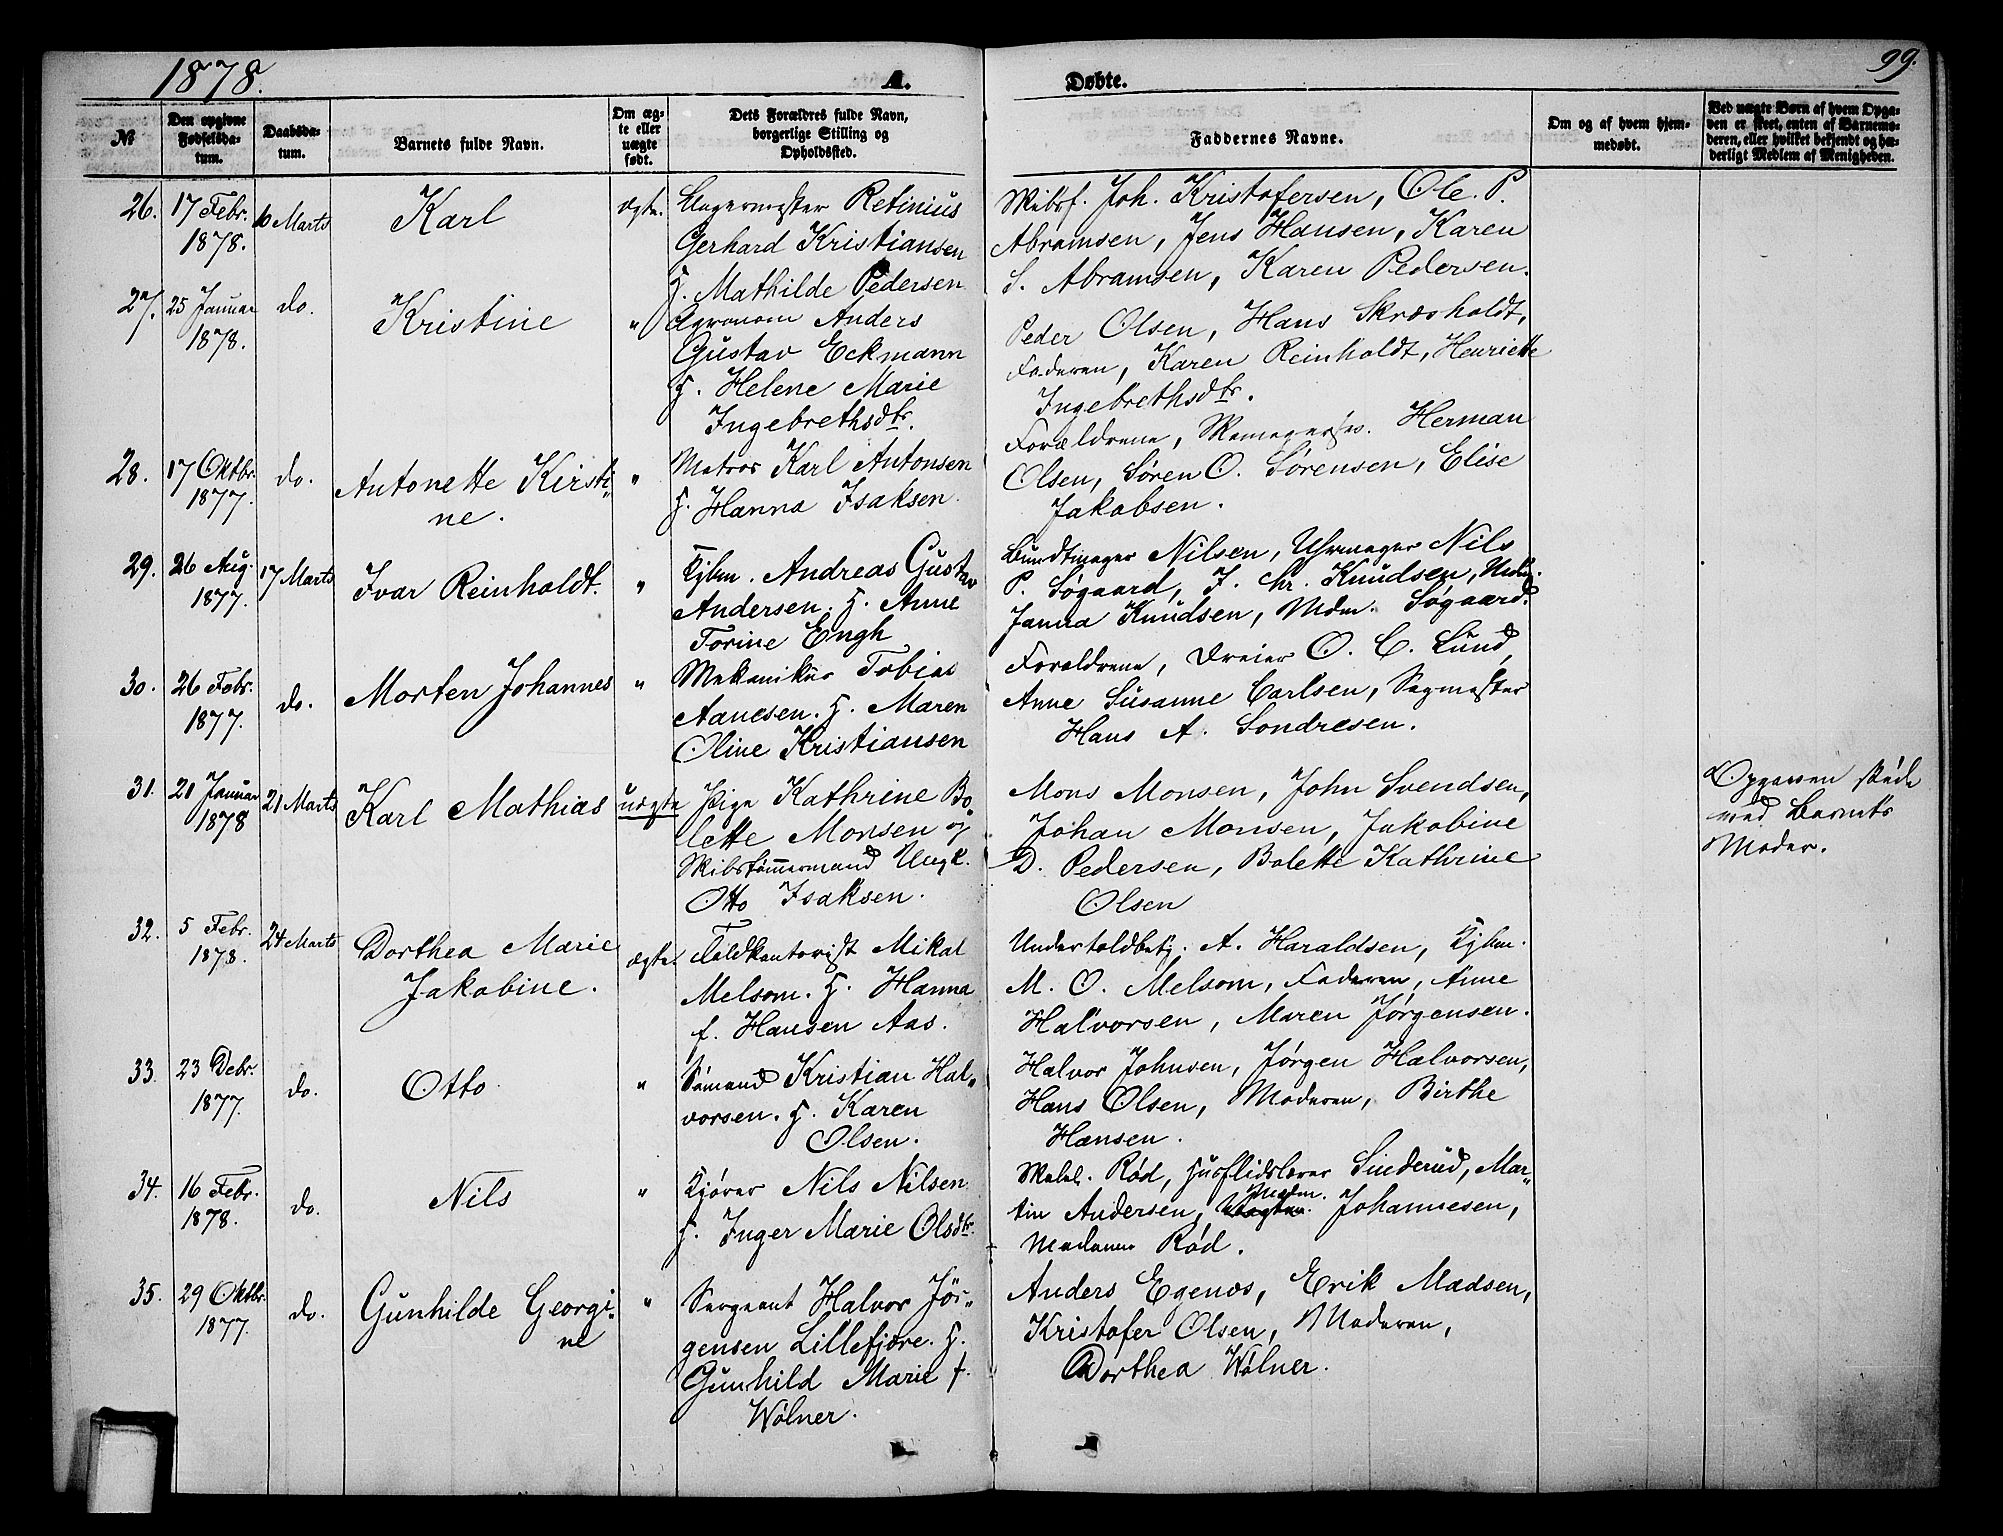 1878.
A.
Døbte.
99.
№
Den opgivne Fødselsdatum.
Daabsdatum.
Barnets fulde Navn.
Om ægte eller uægte født.
Dets Forældres fulde Navn, borgerlige Stilling og Opholdssted.
Faddernes Navne.
Om og af hvem hjemmedøbt.
Ved uægte Børn af hvem Opgaven er skeet, enten af Barnemoderen, eller hvilket bekjendt og hæderligt Medlem af Menigheden.
26.
17 Febr.
1878.
10 Marts
Karl
ægte.
Retinius
Gerhard Kristiansen
H. Mathilde Pedersen
Skibsf. Joh. Kristofersen, Ole P.
Abramsen, Jens Hansen, Karen
S. Abramsen, Karen Pedersen.
27.
25 Januar
1878.
do.
Kristine
"
Agronom Anders
Gustav Eckmann
H. Helene Marie
Ingebrethsdtr.
Peder Olsen, Hans Skræsholdt,
Faderen, Karen Reinholdt, Henriette
Ingebrethsdtr.
28.
17 Oktbr.
1877.
do.
Antonette Kirsti-
ne.
"
Matros Karl Antonsen
H. Hanna Isaksen.
Forældrene, Herman
Olsen, Søren O. Sørensen, Elise
Jakobsen.
29.
26 Aug.
1877.
17 Marts
Ivar Reinholdt.
"
Kjbm. Andreas Gustav
Andersen. H. Anne
Torine Engh
Bundtmager Nilsen, Uhrmager Nils
P. Søgaard, J. Chr. Knudsen, Mdm.
Janna Knudsen, Mdm. Søgaard.
30.
26 Febr.
1877.
do.
Morten Johannes
"
Mekanikus Tobias
Aanesen. H. Maren
Oline Kristiansen
Forældrene, Dreier O. C. Lund,
Anne Susanne Carlsen, Sagmester
Hans A. Sondresen.
31.
21 Januar
1878
21 Marts
Karl Mathias
uægte
Pige Kathrine Bo-
lette Monsen og
Skibstømmermand Ungk.
Otto Isaksen.
Mons Monsen, John Svendsen,
Johan Monsen, Jakobine
D. Pedersen, Bolette Kathrine
Olsen
Opgaven skede
ved Barnets
Moder.
32.
5 Febr.
1878.
24 Marts
Dorthea Marie
Jakobine.
ægte.
Toldkontorist Mikal
Melsom. H. Hanna
f. Hansen Aas.
Undertoldbetj. A. Haraldsen, Kjbm.
M. O. Melsom, Faderen, Anne
Halvorsen, Maren Jørgensen.
33.
23 Debr.
1877.
do.
Otto
"
Sømand Kristian Hal-
vorsen. H. Karen
Olsen.
Halvor Johnsen, Jørgen Halvorsen,
Hans Olsen, Moderen, Birthe
Hansen.
34.
16 Febr.
1878.
do.
Nils
"
Kjører Nils Nilsen
H. Inger Marie Olsdtr.
Rød, Husflidslærer Sinderud, Mar-
tin Andersen, Madm. Johannesen,
Madame Rød.
35.
29 Oktbr.
1877.
do.
Gunhilde Georgi-
ne
"
Sergeant Halvor Jør-
gensen Lillefjære. H.
Gunhild Marie f.
Wølner.
Anders Egenæs, Erik Madsen,
Kristofer Olsen, Moderen,
Dorthea Wølner.